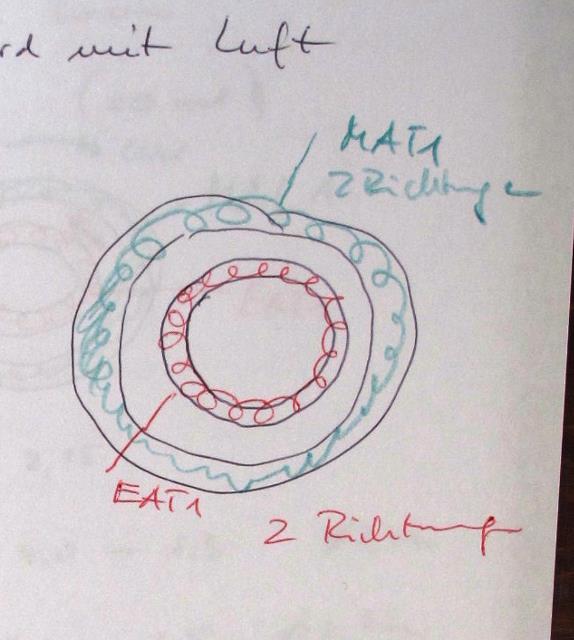 rd mit Luft
MAT1
2 Richtungen
EAT1
2 Richtungen